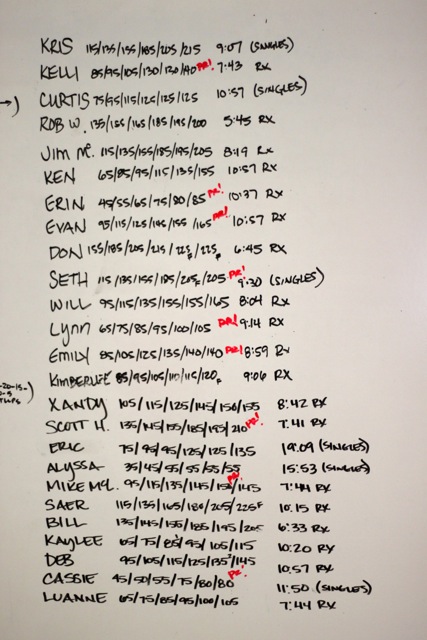 KRIS 115/135/155/185/205/215 9:07 (SINGLES)
KELLI 85/95/105/130/130/140 PR! 7:43 RX
→) CURTIS 75/95/115/125/125/125 10:57 (SINGLES)
ROB W. 135/155/165/185/195/200 5:45 RX
Jim M. 115/135/155/185/195/205 8:19 RX
KEN 65/85/95/115/135/155 10:57 RX
ERIN 45/55/65/75/80/85 PR! 10:37 RX
EVAN 95/115/125/145/155/165 PR! 10:57 RX
DON 155/185/205/215/225F/225F 6:45 RX
SETH 115/135/155/185/205F/205 PR! 9:30 (SINGLES)
WILL 95/115/135/155/155/165 8:04 RX
Lynn 65/75/85/95/100/105 PR! 9:14 RX
EMILY 85/105/125/135/140/140 PR! 8:59 Rx
KIMBERLEE 85/95/105/110/115/120F 9:06 RX
-20-15-
XANDY 105/115/125/145/150/155 8:42 RX
SCOTT H. 135/145/155/185/195/210 PR! 7:41 RX
ERIC 75/95/95/125/125/135 19:09 (SINGLES)
ALYSSA 35/45/55/55/55/55 15:53 (SINGLES)
MIKE McL. 95/115/135/145/155/145 PR! 7:44 RX
SAER 115/135/165/180/205/225F 10:15 RX
BILL 135/145/155/185/195/205 6:33 RX
KAYLEE 65/75/85/95/105/115 10:20 RX
DEB 95/105/115/125/135/145 10:57 RX
CASSIE 45/50/55/75/80/80 PR! 11:50 (SINGLES)
LUANNE 65/75/85/95/100/105 7:44 RX